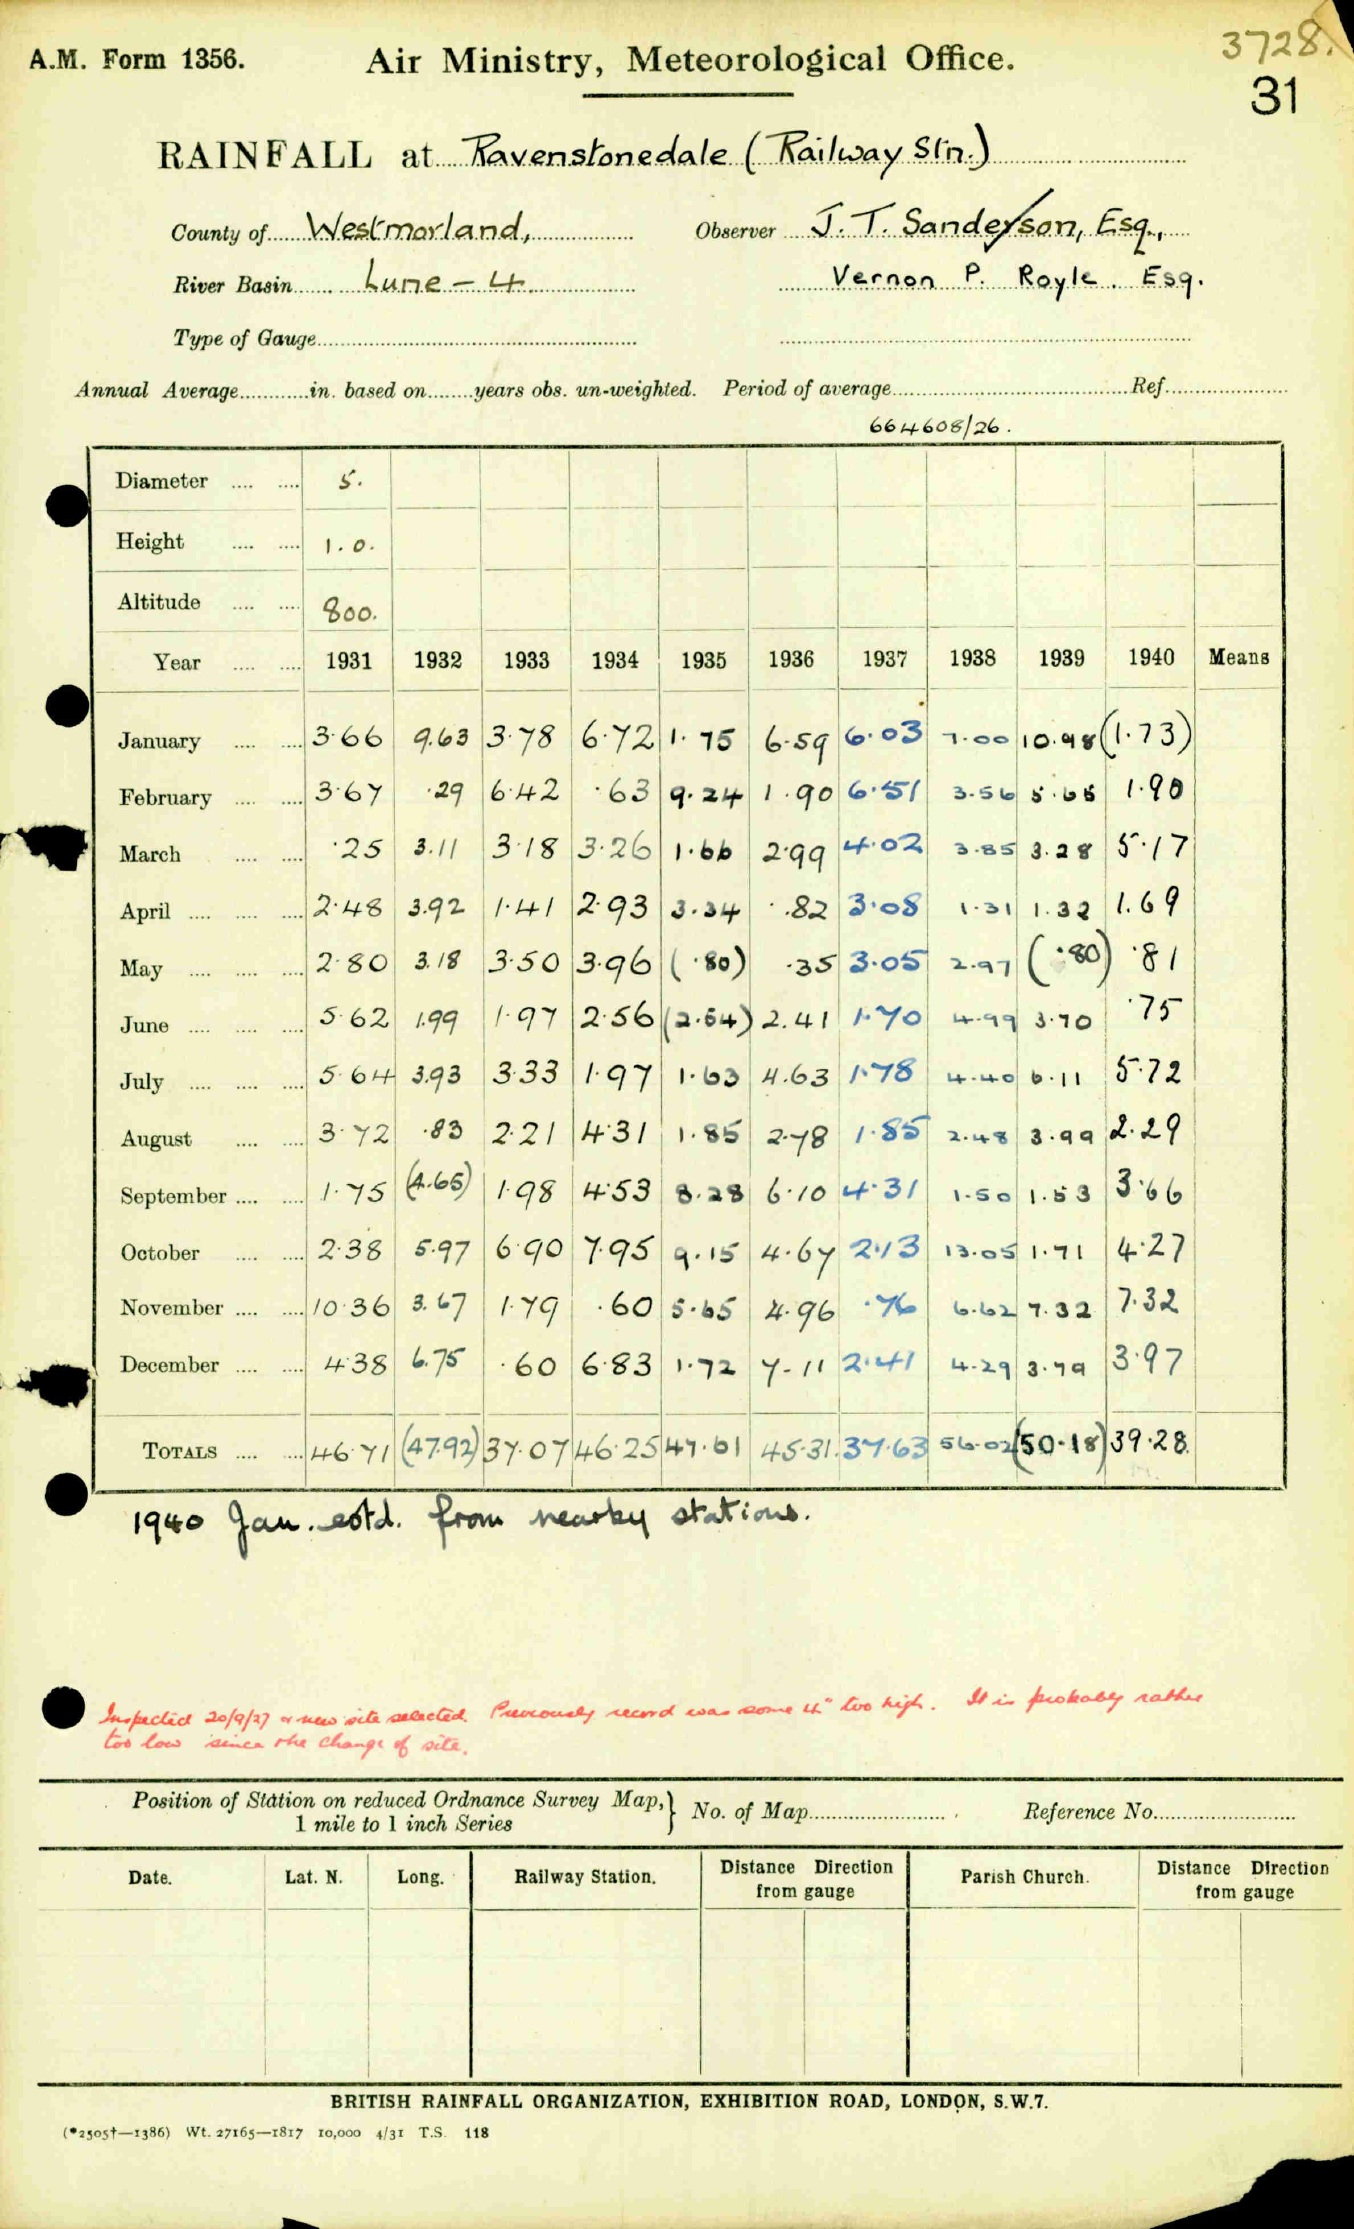 3728.
31
A.M. Form 1356.
Air Ministry, Meteorological Office.
RAINFALL at Ravenstonedale (Railway Stn.)
County of Westmorland, Observer J. T. Sanderson, Esq.,
River Basin Lune – 4 Vernon P. Royle. Esq.
Type of Gauge
Annual Average in. based on years obs. un-weighted. Period of average Ref.
664608/26.
Diameter 5.
Height 1.0.
Altitude 800.
Year 1931 1932 1933 1934 1935 1936 1937 1938 1939 1940 Means
January 3.66 9.63 3.78 6.72 1.75 6.59 6.03 7.00 10.98 (1.73)
February 3.67 .29 6.42 .63 9.24 1.90 6.51 3.56 5.65 1.90
March .25 3.11 3.18 3.26 1.66 2.99 4.02 3.85 3.28 5.17
April 2.48 3.92 1.41 2.93 3.34 .82 3.08 1.31 1.32 1.69
May 2.80 3.18 3.50 3.96 (.80) .35 3.05 2.97 (.80) .81
June 5.62 1.99 1.97 2.56 (2.54) 2.41 1.70 4.99 3.70 .75
July 5.64 3.93 3.33 1.97 1.63 4.63 1.78 4.40 6.11 5.72
August 3.72 .83 2.21 4.31 1.85 2.78 1.85 2.48 3.99 2.29
September 1.75 (4.65) 1.98 4.53 8.28 6.10 4.31 1.50 1.53 3.66
October 2.38 5.97 6.90 7.95 9.15 4.67 2.13 13.05 1.71 4.27
November 10.36 3.67 1.79 .60 5.65 4.96 .76 6.62 7.32 7.32
December 4.38 6.75 .60 6.83 1.72 7.11 2.41 4.29 3.79 3.97
TOTALS 46.71 (47.92) 37.07 46.25 47.61 45.31 37.63 56.02 (50.18) 39.28
1940 Jan. estd. from nearby stations.
Inspected 20/9/27 & new site selected. Previously record was some 4" too high. It is probably rather
too low since the change of site.
Position of Station on reduced Ordnance Survey Map, } No. of Map Reference No.
1 mile to 1 inch Series
Date. Lat. N. Long. Railway Station. Distance Direction from gauge Parish Church. Distance Direction from gauge
BRITISH RAINFALL ORGANIZATION, EXHIBITION ROAD, LONDON, S.W.7.
(*2505†—1386) Wt. 27165—1817 10,000 4/31 T.S. 118